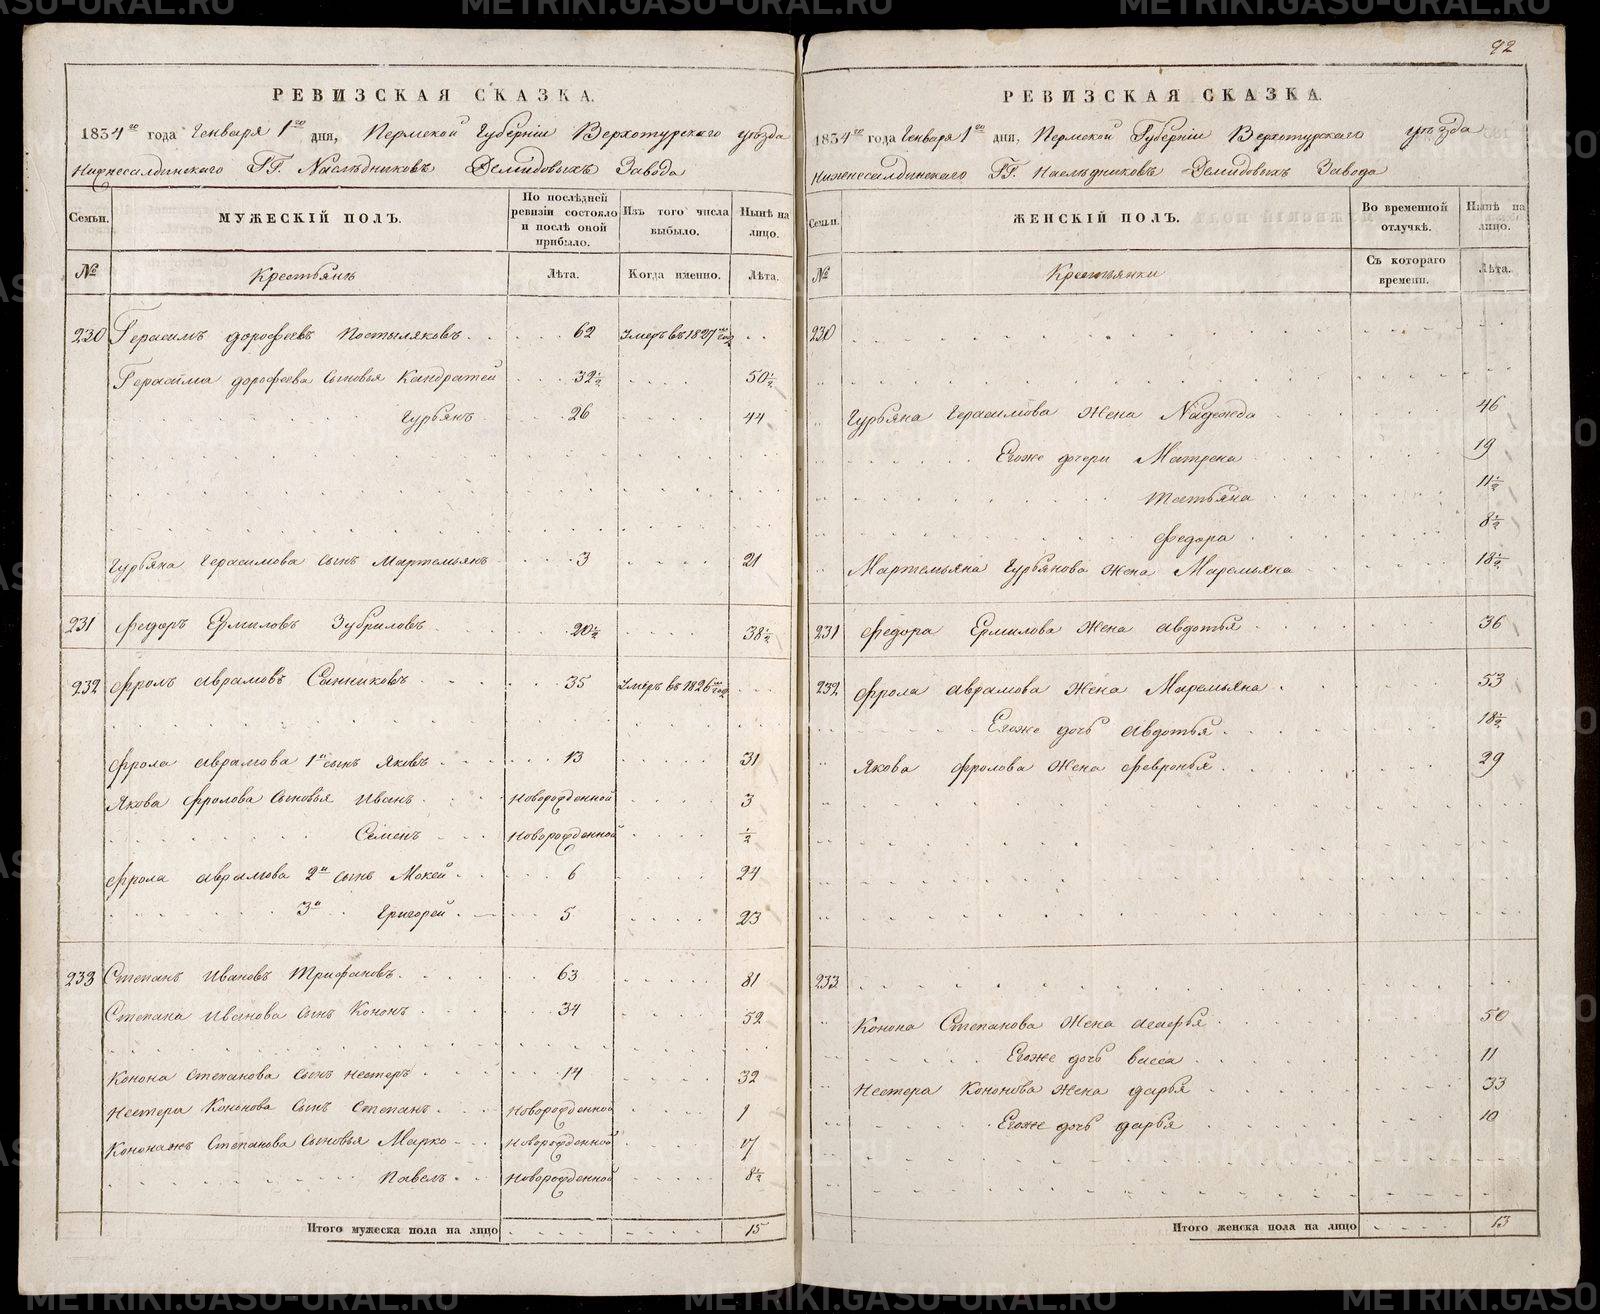 РЕВИЗСКАЯ СКАЗКА.
1834го года Генваря 1го дня, Пермской Губернiи Верхотурскаго уѣзда
Нижнесалдинскаго ГГ. Наслѣдниковъ Демидовыхъ Завода
Семьи.
МУЖЕСКІЙ ПОЛЪ.
По послѣдней ревизіи состояло и послѣ оной прибыло.
Изъ того числа выбыло.
Нынѣ на лицо.
№
Крестьянъ
Лѣта.
Когда именно.
Лѣта.
230 Герасимъ дорофеевъ Постыляковъ 62 Умеръ въ 1827м год
Герасима дорофеева Сыновья Кандратей 32½ 50½
Гурьянъ 26 44
Гурьяна Герасимова сынъ Мартемьянъ 3 21
231 Федоръ Ермиловъ Зубриловъ 20½ 38½
232 Фролъ Аврамовъ Санниковъ 35 Умеръ въ 1826м год
Фрола Аврамова 1й сынъ Яковъ 13 31
Якова Фролова Сыновья Иванъ Новорожденной 3
Семенъ Новорожденной ½
Фрола Аврамова 2й сынъ Мокей 6 24
3й Григорей 5 23
233 Степанъ Ивановъ Трифановъ 63 81
Степана Иванова сынъ Кононъ 34 52
Конона Степанова сынъ Нестеръ 14 32
Нестера Кононова сынъ Степанъ Новорожденной 1
Кононажъ Степанова Сыновья Марко Новорожденной 17
Павелъ Новорожденной 8½
Итого мужеска пола на лицо 15
92
РЕВИЗСКАЯ СКАЗКА.
1834го года Генваря 1го дня, Пермской Губернiи Верхотурскаго уѣзда
Нижнесалдинскаго ГГ. Наслѣдниковъ Демидовыхъ Завода
Семьи.
ЖЕНСКІЙ ПОЛЪ.
Во временной отлучкѣ.
Нынѣ на лицо.
№
Крестьянки
Съ котораго времени.
Лѣта.
230
Гурьяна Герасимова Жена Надежда 46
Егоже дочери Матрена 19
Татьяна 11½
Федора 8½
Мартемьяна Гурьянова Жена Маремьяна 18½
231 Федора Ермилова Жена Авдотья 36
232 Фрола Аврамова Жена Маремьяна 53
Егоже дочь Авдотья 18½
Якова Фролова Жена Февронья 29
233
Конона Степанова Жена Агафья 50
Егоже дочь Васса 11
Нестера Кононова Жена дарья 33
Егоже дочь дарья 10
Итого женска пола на лицо 13
METRIKI.GASO-URAL.RU